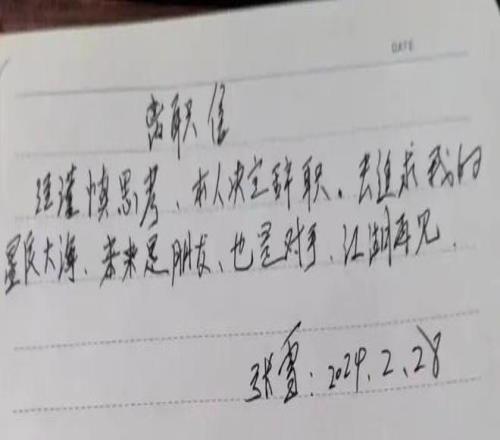 DATE
离职信
经谨慎思考、本人决定辞职。去追求我的
星辰大海、未来是朋友、也是对手、江湖再见.
张雪:2024.2.28